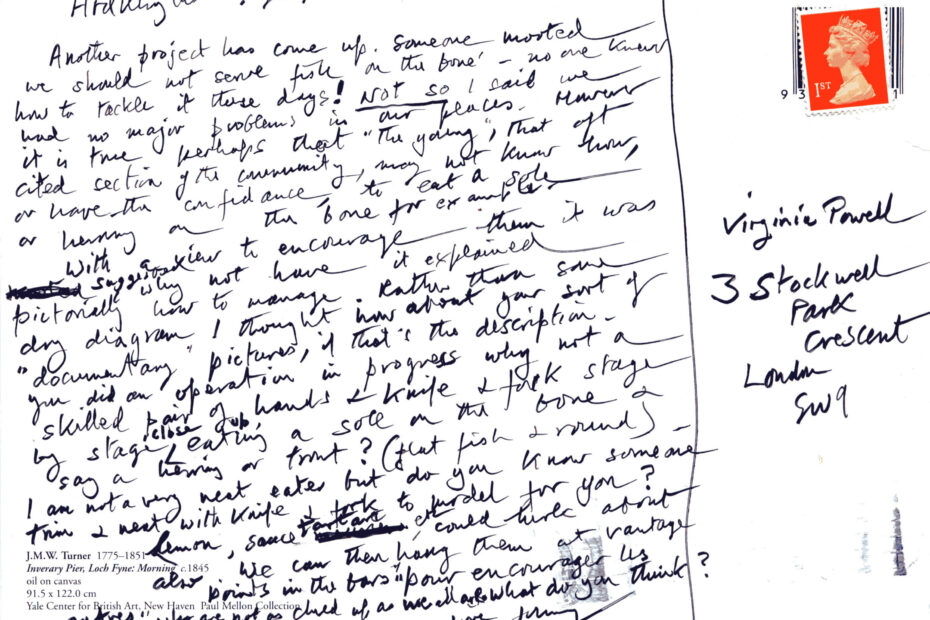 Another project has come up. Someone mooted
we should not serve fish 'on the bone' - no one knew
how to tackle it these days! Not so I said we
had no major problems in our places. However
it is true perhaps that "the young", that oft
cited section of the community, may not know how,
or have the confidence, to eat a sole
or herring on the bone for example.
With a view to encourage them it was
suggested why not have it explained
pictorially how to manage. Rather than some
dry diagram I thought how about your sort of
"documentary" pictures, if that's the description.
you did an operation in progress why not a
skilled pair of hands & knife & fork stage
by stage, close up, eating a sole on the bone &
say a herring or trout? (flat fish & round) -
I am not a very neat eater but do you know someone
trim & neat with knife & fork to model for you?
Lemon, sauce could lurk about
also. We can then hang them at vantage
points in the bars "pour encourager les
autres" who are not as clued up as we all are. What do you think?
love
J.M.W. Turner 1775–1851
Inverary Pier, Loch Fyne: Morning c.1845
oil on canvas
91.5 x 122.0 cm
Yale Center for British Art, New Haven Paul Mellon Collection
1ST
9
1
Virginia Powell
3 Stockwell
Park
Crescent
London
SW9